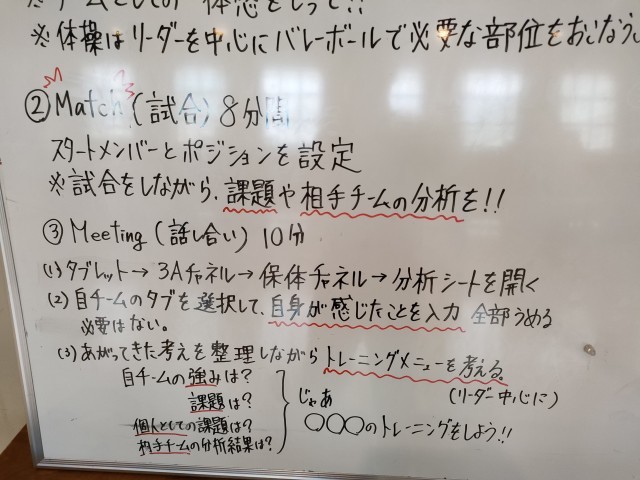 チームとしての一体感をもって!!
※体操はリーダーを中心にバレーボールで必要な部位をおこなう。
② Match (試合) 8分間
スタートメンバーとポジションを設定
※試合をしながら、課題や相手チームの分析を!!
③ Meeting (話し合い) 10分
(1) タブレット→3Aチャネル→保体チャネル→分析シートを開く
(2) 自チームのタブを選択して、自身が感じたことを入力 全部うめる
必要はない。
(3) あがってきた考えを整理しながらトレーニングメニューを考える。
自チームの強みは?
(リーダー中心に)
課題は?
じゃあ
個人としての課題は?
○○○のトレーニングをしよう!!
相手チームの分析結果は?